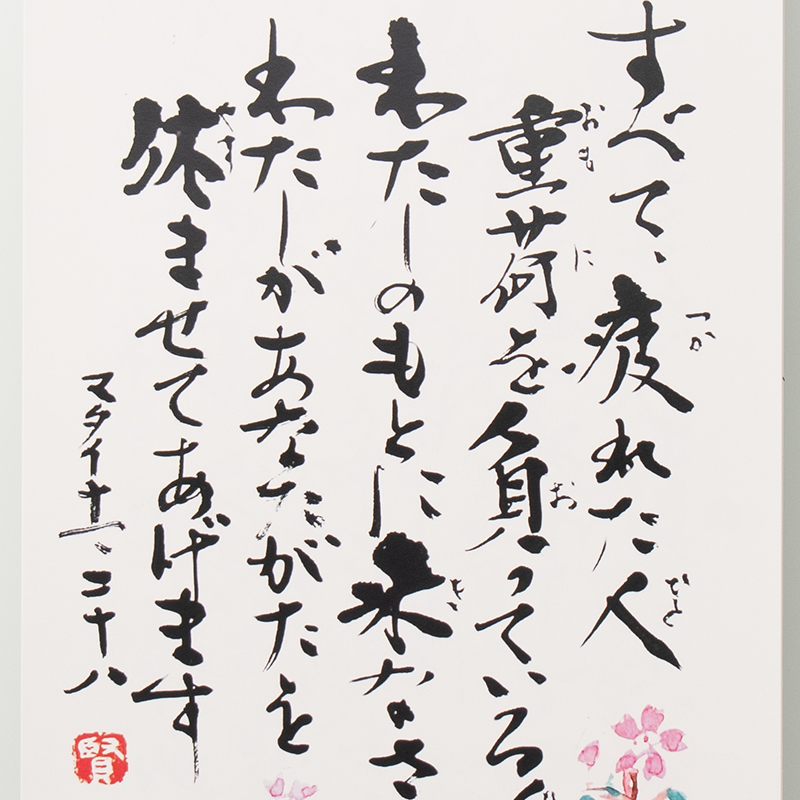 すべて、疲れた人
重荷を負っている
わたしのもとに来なさ
わたしがあなたがたを
休ませてあげます
マタイ十一、二十八
賢